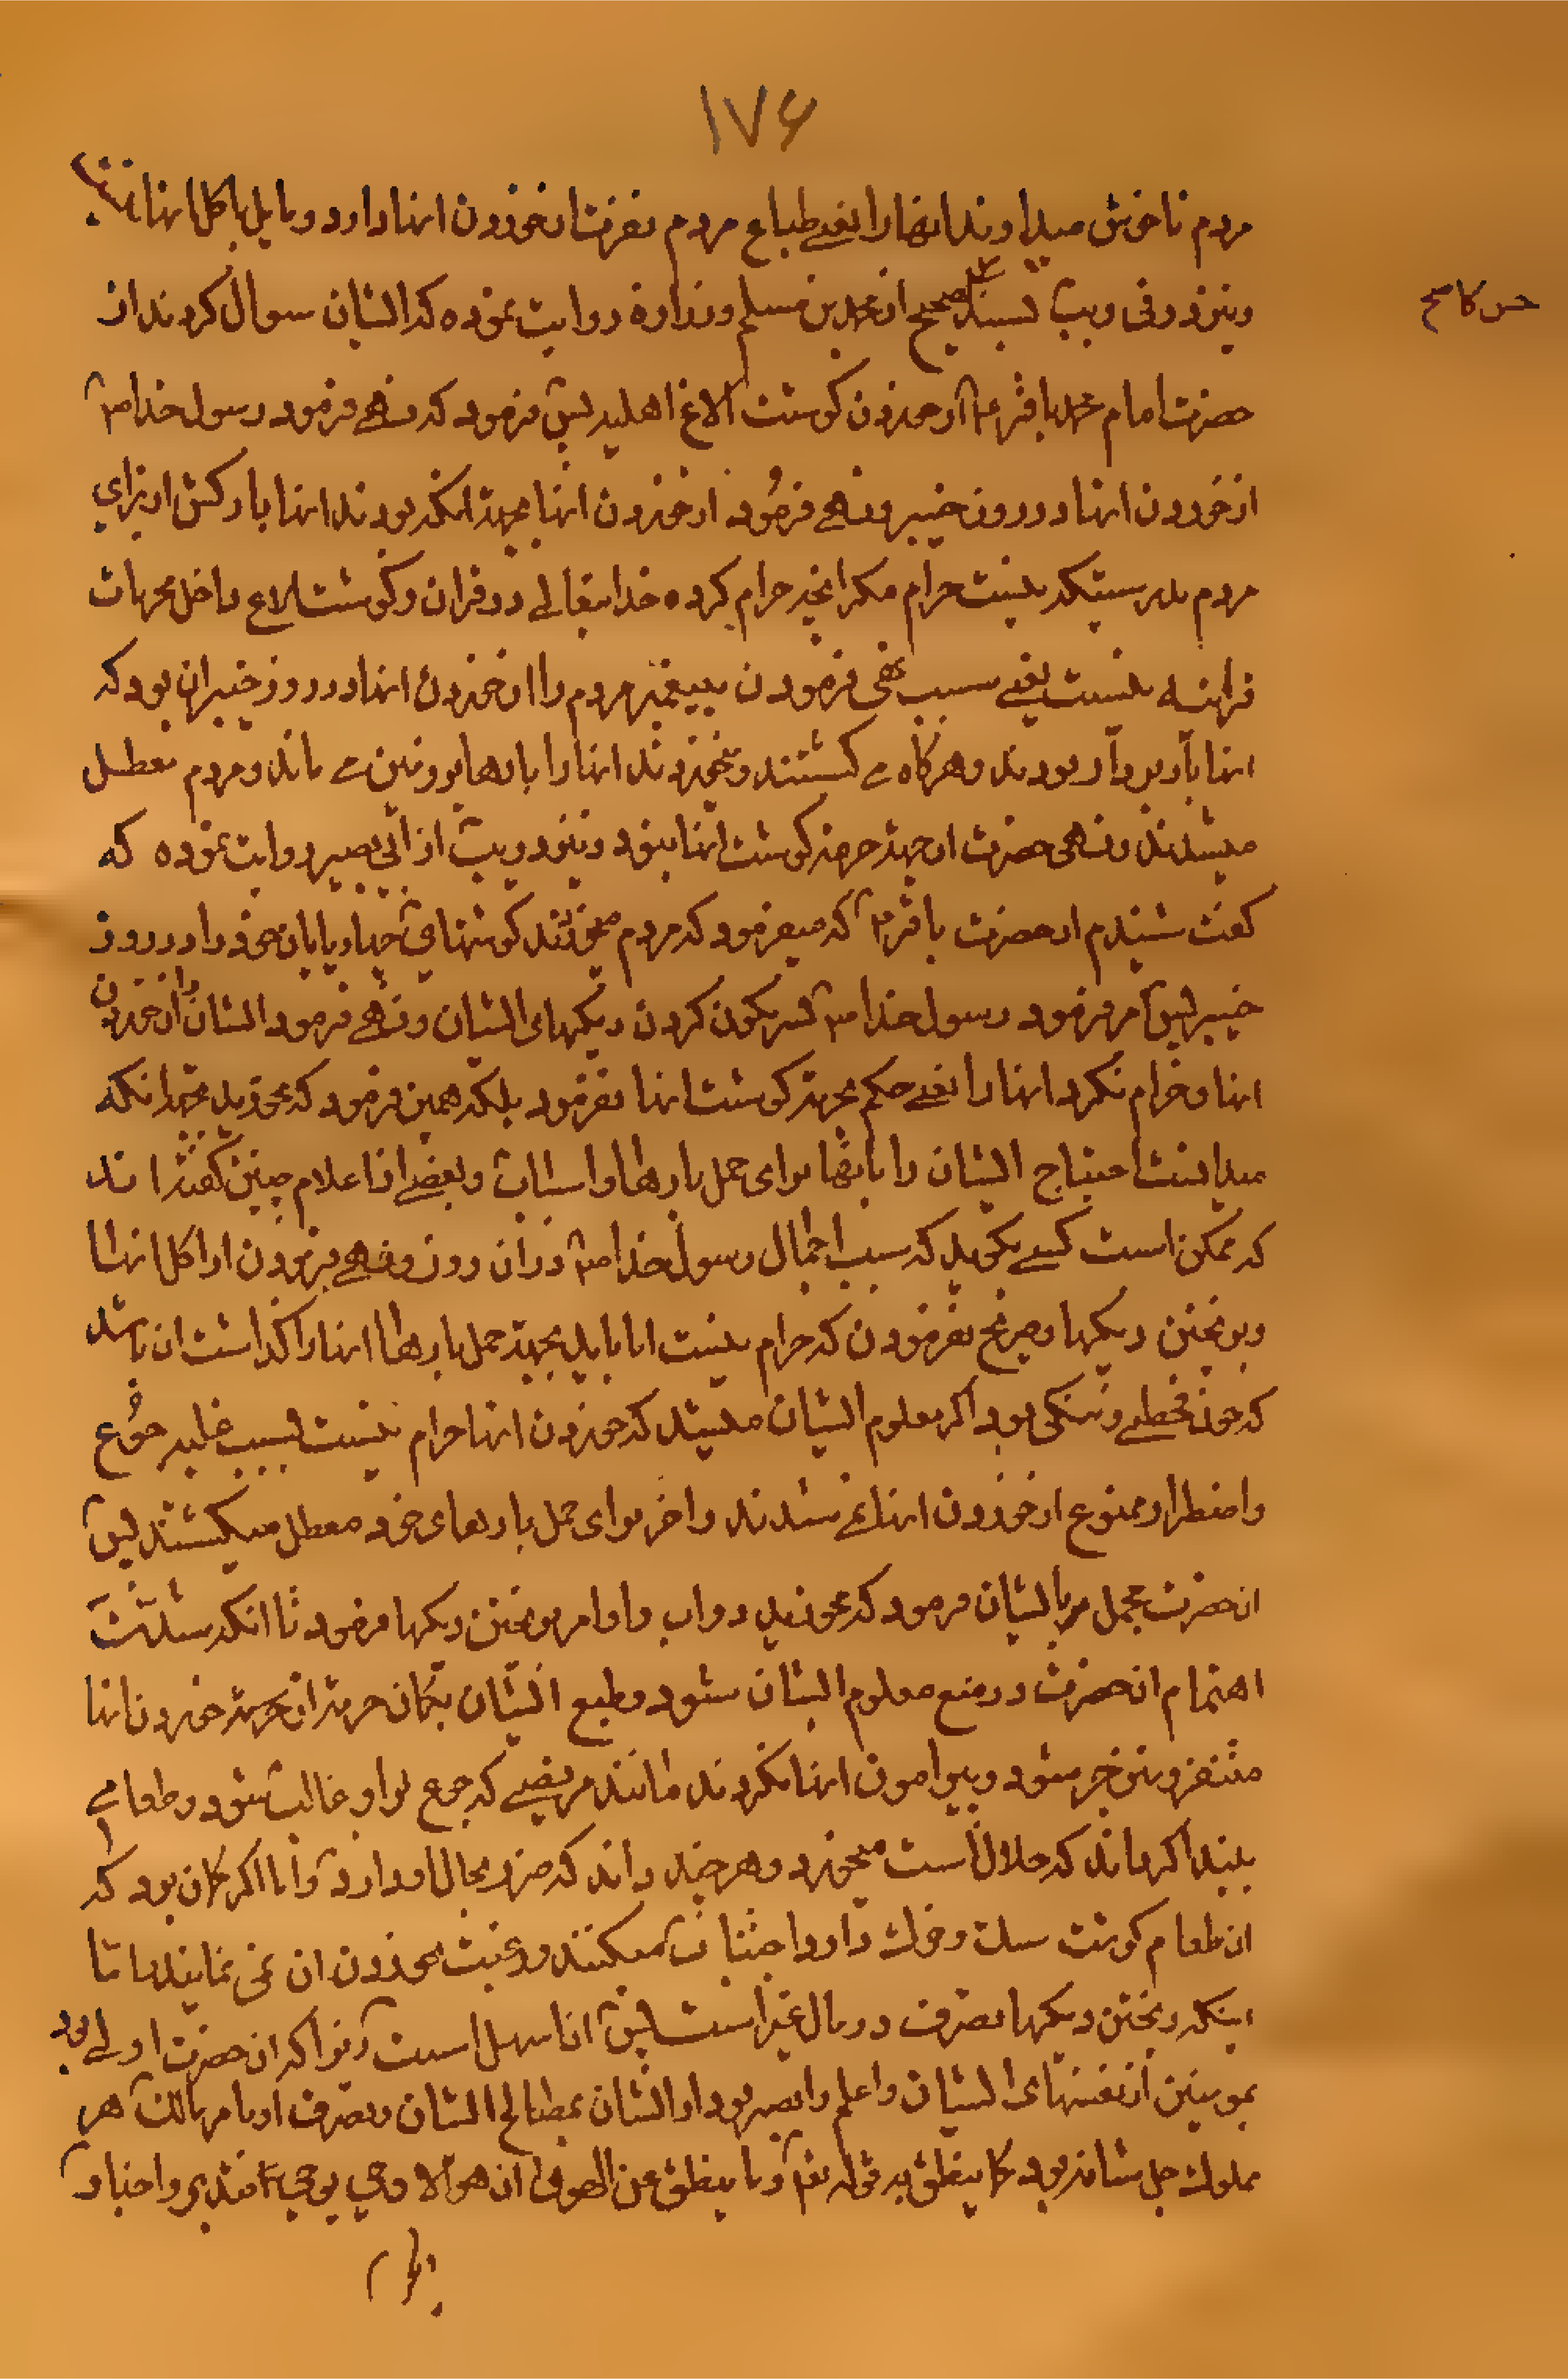 ۱۷۶
مردم ناخوش میداوند انهارا یعنے طباع مردم نفرت از خوردن اینها دارد و مایل باکل اینها نیند
و نیز در فی و یب بسند صحیح از محمد بن مسلم و زراره روایت نموده که ایشان سوال کردند از
حسن کا صح
حضرت امام محمد باقر ع از خوردن کوشت الاغ اهلیه پس فرمود که نهے فرمود رسول خدا ص
از خوردن اینها در روز خیبر و نهے فرمود از خوردن اینها بجهة انکه بودند اینها بارکش از برای
مردم بدرستیکه نیست حرام مکر انچه حرام کرده خدایتعالے در قران و کوشت الاغ داخل محرمات
قرانیه نیست یعنے سبب نهی فرمودن پیغمبر مردم را از خوردن اینها در روز خیبر ان بود که
اینها باربردار بودند و هرکاه مے کشتند و میخوردند اینها را بارها بر زمین مے ماند و مردم معطل
میشدند و نهی حضرت از جهة حرمة کوشت اینها نبود و نیز در یب از ابی بصیر روایت نموده که
کفت شنیدم از حضرت باقر ع که میفرمود که مردم میخوردند کوشتهای چهارپایان خود را در روز
خیبر پس امر فرمود رسول خدا ص بسرنکون کردن دیکهای ایشان و نهے فرمود ایشان را از خوردن
اینها و حرام نکرد اینها را یعنے حکم بحرمة کوشت اینها نفرمود بلکه همین فرمود که نخورید بجهة انکه
میدانست احتیاج ایشان را باینها برای حمل بارها و اسباب و بعضے از اعلام چنین کفته اند
که ممکن است کسے بکوید که سبب اجمال رسول خدا ص در ان روز و نهے فرمودن از اکل اینها
و برنختن دیکها و صریح نفرمودن که حرام نیست اما باید بجهة حمل بارها اینها را کذاشت ان باشد
که چون قحطے و تنکی بود اکر معلوم ایشان میشد که خوردن اینها حرام نیست بسبب غلبه جوع
و اضطرار ممنوع از خوردن اینها نمے شدند و اخر برای حمل بارهای خود معطل میکشتند پس
ان حضرت مجمل بایشان فرمود که نخورید دواب را و امر بریختن دیکها فرمود تا انکه شدت
اهتمام ان حضرت در منع معلوم ایشان شود و طبع ایشان بکمان حرمة از جهة خوردن اینها
متنفر و منزجر شود و پیرامون اینها نکردند مانند مریضے که جوع بر او غالب شود و طعامے
بیند اکر داند که حلال است میخورد و هر چند داند که ضرر بحال او دارد و اما اکر کمان بود که
ان طعام کوشت سک و خوک دارد اجتناب میکنند و رغبت بخوردن ان نمی نمایند و اما
اینکه ریختن دیکها تصرف در مال غیر است پس ان سهل است زیرا که ان حضرت اولے بود
بمومنین از نفسهای ایشان و اعلم و ابصر بود از ایشان بمصالح ایشان و تصرف او بامر مالک هر
مملوک جل شانه بود کما ینطق به قوله تعالی و ما ینطق عن الهوی ان هو الا وحی یوحی فتدبر و اخبار